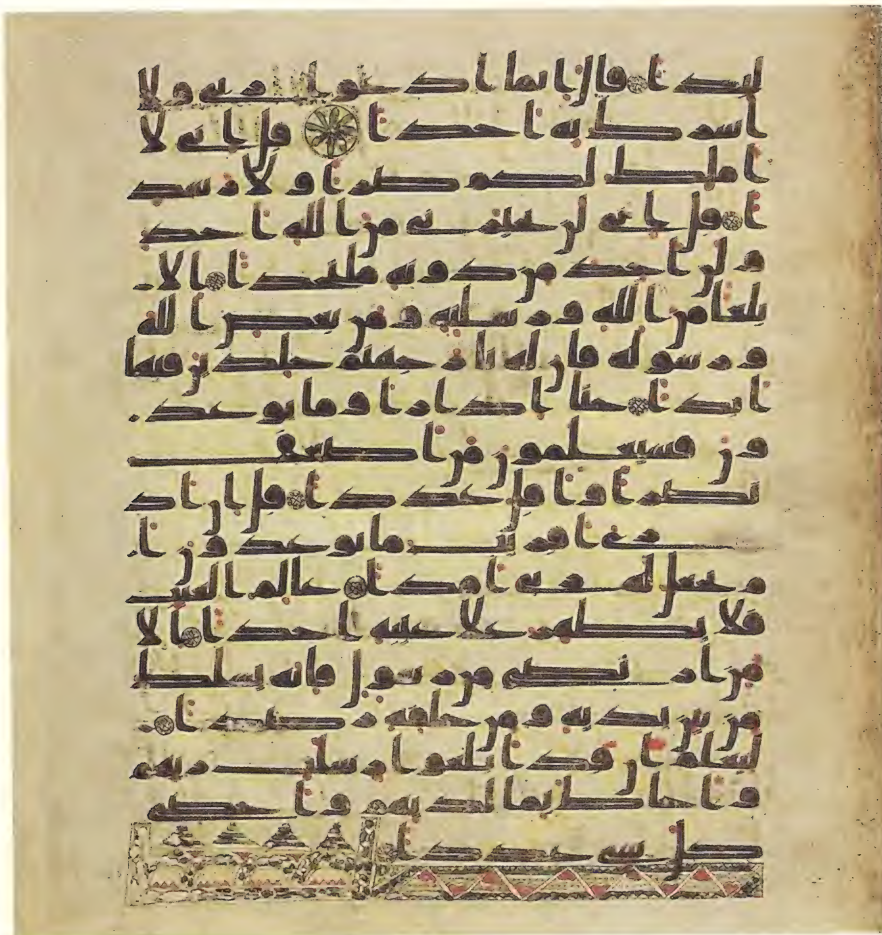 لبدا قال انما ادعوا ربي ولا
اشرك به احدا قل اني لا
املك لكم ضرا ولا رشد
ا قل اني لن يجيرني من الله احد
ولن اجد من دونه ملتحدا الا
بلغا من الله ورسلته ومن يعص الله
ورسوله فان له نار جهنم خلدين فيها
ابدا حتا اذا راوا ما يوعد
ون فسيعلمون من اضعف
نصرا واقل عددا قل ان اد
ري اقريب ما توعدون ا
م يجعل له ربي امدا عالم الغيب
فلا يظهر علا غيبه احدا الا
من ارتضى من رسول فانه يسلك
من بين يديه ومن خلفه رصدا
ليعلم ان قد ابلغوا رسلت ربهم
واحاط بما لديهم واحصى
كل شي عددا